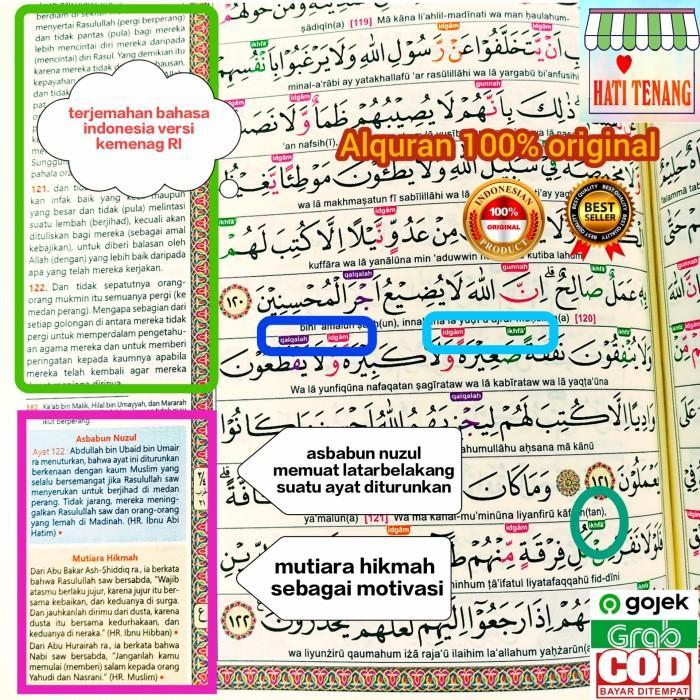 berdiam di
menyertai Rasulullah (pergi berperang)
dan tidak pantas (pula) bagi mereka
lebih mencintai diri mereka daripada
(mencintai) diri Rasul. Yang demikian itu
karena mereka tidak
kepayahan
terjemahan bahasa
indonesia versi
kemenag RI
121. dan
kan infak baik yang maupun
yang besar dan tidak (pula) melintasi
suatu lembah (berjihad), kecuali akan
dituliskan bagi mereka (sebagai amal
kebajikan), untuk diberi balasan oleh
Allah (dengan) yang lebih baik daripada
apa yang telah mereka kerjakan.
122. Dan tidak sepatutnya orang-
orang mukmin itu semuanya pergi (ke
medan perang). Mengapa sebagian dari
setiap golongan di antara mereka tidak
pergi untuk memperdalam pengetahu-
an agama mereka dan untuk memberi
peringatan kepada kaumnya apabila
mereka telah kembali agar mereka
382. Ka'ab bin Malik, Hilal bin Umayyah, dan Mararah
ikut berperang.
Asbabun Nuzul
Ayat 122 : Abdullah bin Ubaid bin Umair
ra menuturkan, bahwa ayat ini diturunkan
berkenaan dengan kaum Muslim yang
selalu bersemangat jika Rasulullah saw
menyerukan untuk berjihad di medan
perang. Tidak jarang, mereka mening-
galkan Rasulullah saw dan orang-orang
yang lemah di Madinah. (HR. Ibnu Abi
Hatim)
Mutiara Hikmah
Dari Abu Bakar Ash-Shiddiq ra., ia berkata
bahwa Rasulullah saw bersabda, "Wajib
atasmu berlaku jujur, karena jujur itu ber-
sama kebaikan, dan keduanya di surga.
Dan jauhkanlah dirimu dari dusta, karena
dusta itu bersama kedurhakaan, dan
keduanya di neraka." (HR. Ibnu Hibban)
Dari Abu Hurairah ra., ia berkata bahwa
Nabi saw bersabda, "Janganlah kamu
memulai (memberi) salam kepada orang
Yahudi dan Nasrani." (HR. Muslim)
ṣādiqīn(a) [119] Mā kāna li'ahlil-madīnati wa man ḥaulahum-
اَنْ يَّتَخَلَّفُوْا عَنْ رَّسُوْلِ اللّٰهِ وَلَا يَرْغَبُوْا بِاَنْفُسِهِمْ
minal-a'rābi ay yatakhallafū 'ar rasūlillāhi wa lā yargabū bi'anfusihi
ذٰلِكَ بِاَنَّهُمْ لَا يُصِيْبُهُمْ ظَمَاٌ وَّلَا نَصَبٌ
HATI TENANG
Alquran 100% original
INDONESIAN
100%
ORIGINAL
PRODUCT
BEST QUALITY
BEST
SELLER
فِيْ سَبِيْلِ اللّٰهِ وَلَا يَطَـُٔوْنَ مَوْطِئًا
wa lā makhmaṣatun fī sabīlillāhi wa lā
مِنْ عَدُوٍّ نَّيْلًا اِلَّا كُتِبَ لَهُمْ
kuffāra wa lā yanālūna min 'aduwwin kutiba lahum
بِهٖ عَمَلٌ صَالِحٌ اِنَّ اللّٰهَ لَا يُضِيْعُ اَجْرَ الْمُحْسِنِيْنَ ١٢٠
[120]
qalqalah idgām idgām ikhfā'
وَلَا يُنْفِقُوْنَ نَفَقَةً صَغِيْرَةً وَّلَا كَبِيْرَةً وَّلَا يَقْطَعُوْنَ
Wa lā yunfiqūna nafaqatan ṣagīrataw wa lā kabīrataw wa lā yaqṭa'ūna
وَادِيًا اِلَّا كُتِبَ لَهُمْ لِيَجْزِيَهُمُ اللّٰهُ اَحْسَنَ مَا كَانُوْا
humullāhu aḥsana mā kānū
asbabun nuzul
memuat latarbelakang
suatu ayat diturunkan
يَعْمَلُوْنَ ١٢١ وَمَا كَانَ
ya'malūn(a). [121] Wa mā kānal-mu'minūna liyanfirū kāffah(tan),
ikhfā'
فَلَوْلَا نَفَرَ مِنْ كُلِّ فِرْقَةٍ مِّنْهُمْ
minhum ṭā'ifatul liyatafaqqahū fid-dīni
mutiara hikmah
sebagai motivasi
اِذَا رَجَعُوْٓا اِلَيْهِمْ لَعَلَّهُمْ يَحْذَرُوْنَ ١٢٢
wa liyunżirū qaumahum iżā raja'ū ilaihim la'allahum yaḥżarūn(a)
gojek
Grab
COD
BAYAR DITEMPAT